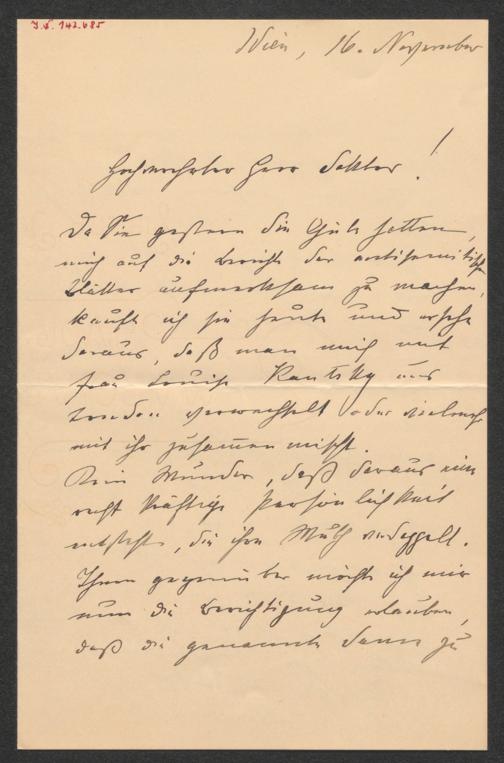 J.N. 142.685
Wien, 16. November
Hochverehrter Herr Doktor!
Da Sie gestern die Güte hatten,
mich auf die Berichte der antisemitischen
Blätter aufmerksam zu machen,
kaufte ich sie heute und ersehe
daraus, daß man mich mit
Frau Louise Kautsky aus
London verwechselt oder vielmehr
mit ihr zusammenmischt.
Kein Wunder, daß daraus eine
recht kräftige Persönlichkeit
entsteht, die ihren Muth verdoppelt.
Ihnen gegenüber möchte ich mir
nun die Berichtigung erlauben,
daß die genannte Dame zu